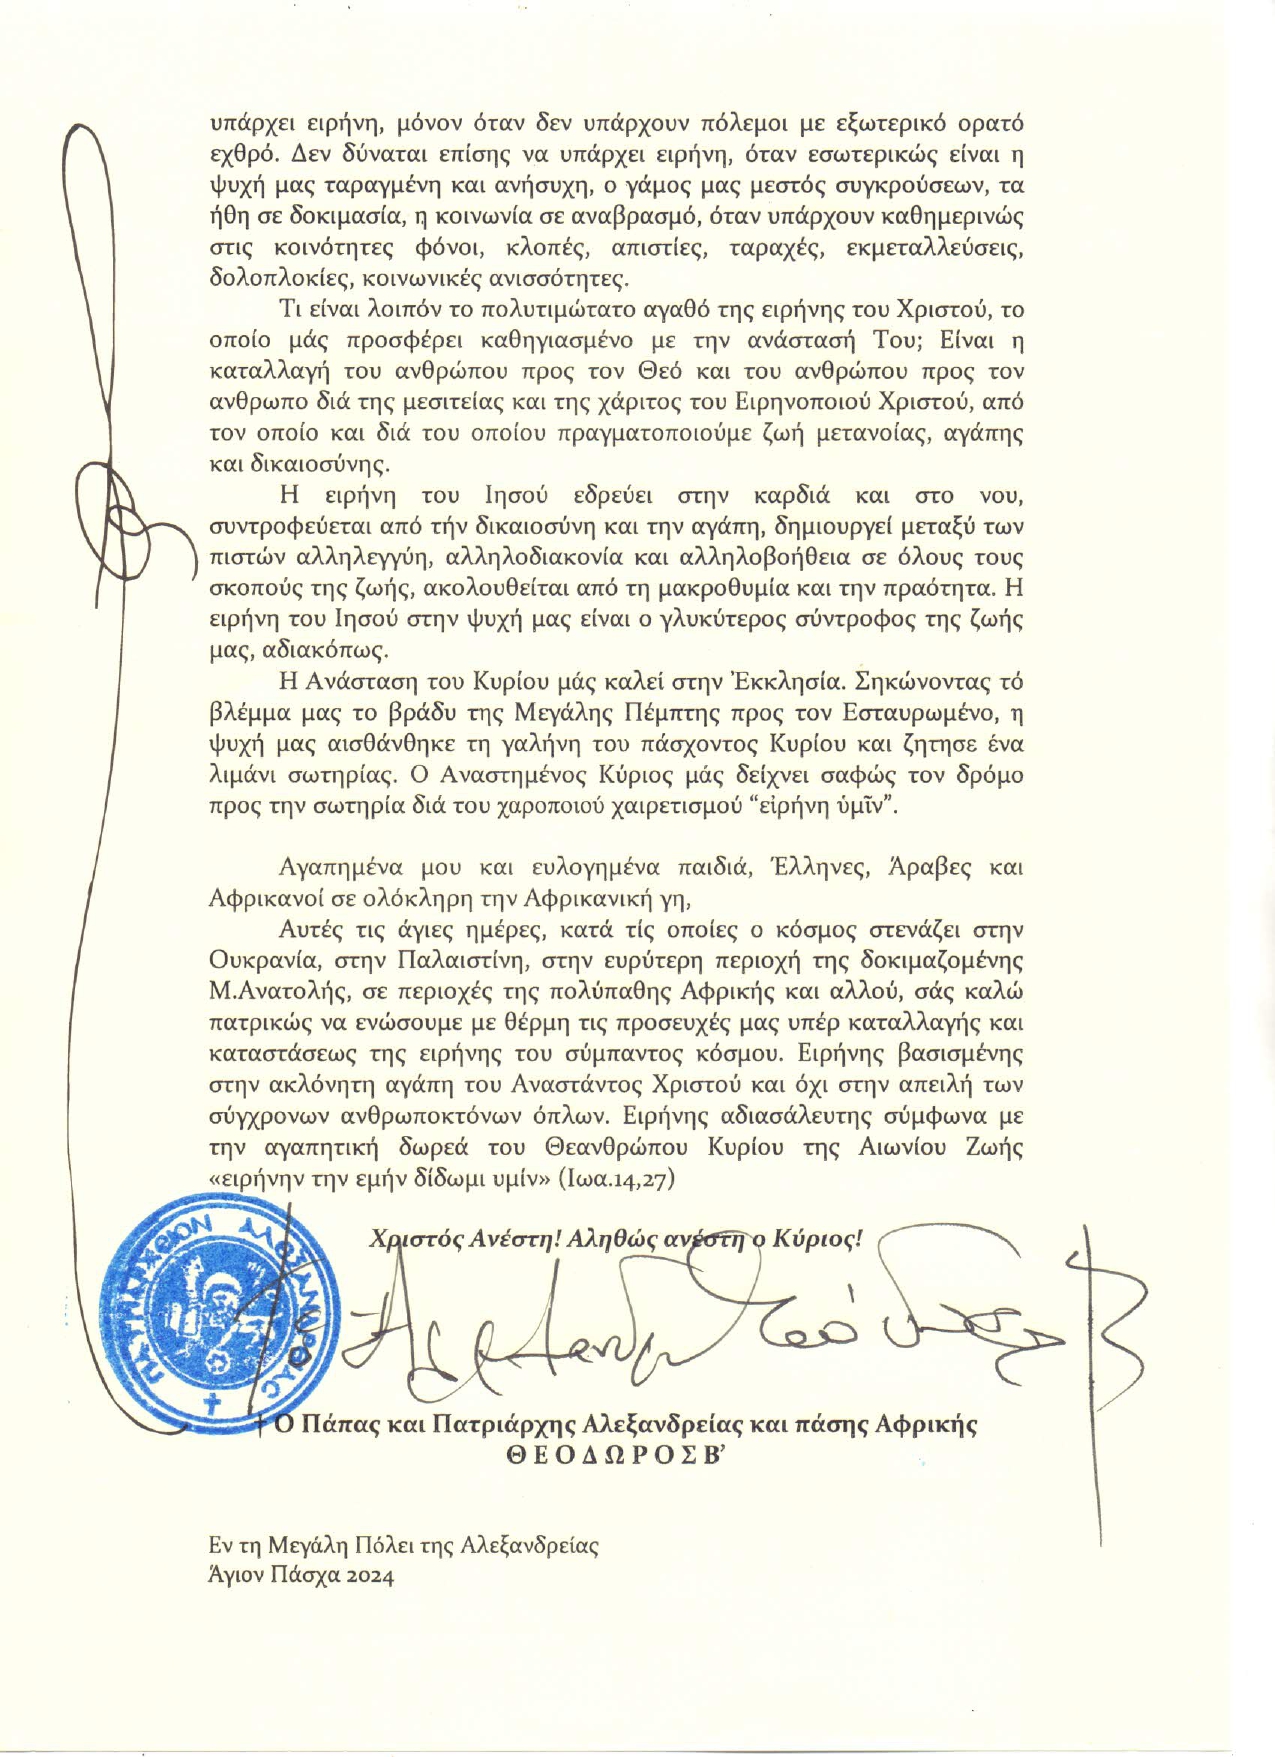 υπάρχει ειρήνη, μόνον όταν δεν υπάρχουν πόλεμοι με εξωτερικό ορατό
εχθρό. Δεν δύναται επίσης να υπάρχει ειρήνη, όταν εσωτερικώς είναι η
ψυχή μας ταραγμένη και ανήσυχη, ο γάμος μας μεστός συγκρούσεων, τα
ήθη σε δοκιμασία, η κοινωνία σε αναβρασμό, όταν υπάρχουν καθημερινώς
στις κοινότητες φόνοι, κλοπές, απιστίες, ταραχές, εκμεταλλεύσεις,
δολοπλοκίες, κοινωνικές ανισσότητες.
Τι είναι λοιπόν το πολυτιμώτατο αγαθό της ειρήνης του Χριστού, το
οποίο μάς προσφέρει καθηγιασμένο με την ανάστασή Του; Είναι η
καταλλαγή του ανθρώπου προς τον Θεό και του ανθρώπου προς τον
ανθρωπο διά της μεσιτείας και της χάριτος του Ειρηνοποιού Χριστού, από
τον οποίο και διά του οποίου πραγματοποιούμε ζωή μετανοίας, αγάπης
και δικαιοσύνης.
Η ειρήνη του Ιησού εδρεύει στην καρδιά και στο νου,
συντροφεύεται από τήν δικαιοσύνη και την αγάπη, δημιουργεί μεταξύ των
πιστών αλληλεγγύη, αλληλοδιακονία και αλληλοβοήθεια σε όλους τους
σκοπούς της ζωής, ακολουθείται από τη μακροθυμία και την πραότητα. Η
ειρήνη του Ιησού στην ψυχή μας είναι ο γλυκύτερος σύντροφος της ζωής
μας, αδιακόπως.
Η Ανάσταση του Κυρίου μάς καλεί στην Ἐκκλησία. Σηκώνοντας τό
βλέμμα μας το βράδυ της Μεγάλης Πέμπτης προς τον Εσταυρωμένο, η
ψυχή μας αισθάνθηκε τη γαλήνη του πάσχοντος Κυρίου και ζητησε ένα
λιμάνι σωτηρίας. Ο Αναστημένος Κύριος μάς δείχνει σαφώς τον δρόμο
προς την σωτηρία διά του χαροποιού χαιρετισμού “εἰρήνη ὑμῖν”.
Αγαπημένα μου και ευλογημένα παιδιά, Έλληνες, Άραβες και
Αφρικανοί σε ολόκληρη την Αφρικανική γη,
Αυτές τις άγιες ημέρες, κατά τίς οποίες ο κόσμος στενάζει στην
Ουκρανία, στην Παλαιστίνη, στην ευρύτερη περιοχή της δοκιμαζομένης
Μ.Ανατολής, σε περιοχές της πολύπαθης Αφρικής και αλλού, σάς καλώ
πατρικώς να ενώσουμε με θέρμη τις προσευχές μας υπέρ καταλλαγής και
καταστάσεως της ειρήνης του σύμπαντος κόσμου. Ειρήνης βασισμένης
στην ακλόνητη αγάπη του Αναστάντος Χριστού και όχι στην απειλή των
σύγχρονων ανθρωποκτόνων όπλων. Ειρήνης αδιασάλευτης σύμφωνα με
την αγαπητική δωρεά του Θεανθρώπου Κυρίου της Αιωνίου Ζωής
«ειρήνην την εμήν δίδωμι υμίν» (Ιωα.14,27)
Χριστός Ανέστη! Αληθώς ανέστη ο Κύριος!
† Ο Πάπας και Πατριάρχης Αλεξανδρείας και πάσης Αφρικής
Θ Ε Ο Δ Ω Ρ Ο Σ Β’
Εν τη Μεγάλη Πόλει της Αλεξανδρείας
Άγιον Πάσχα 2024